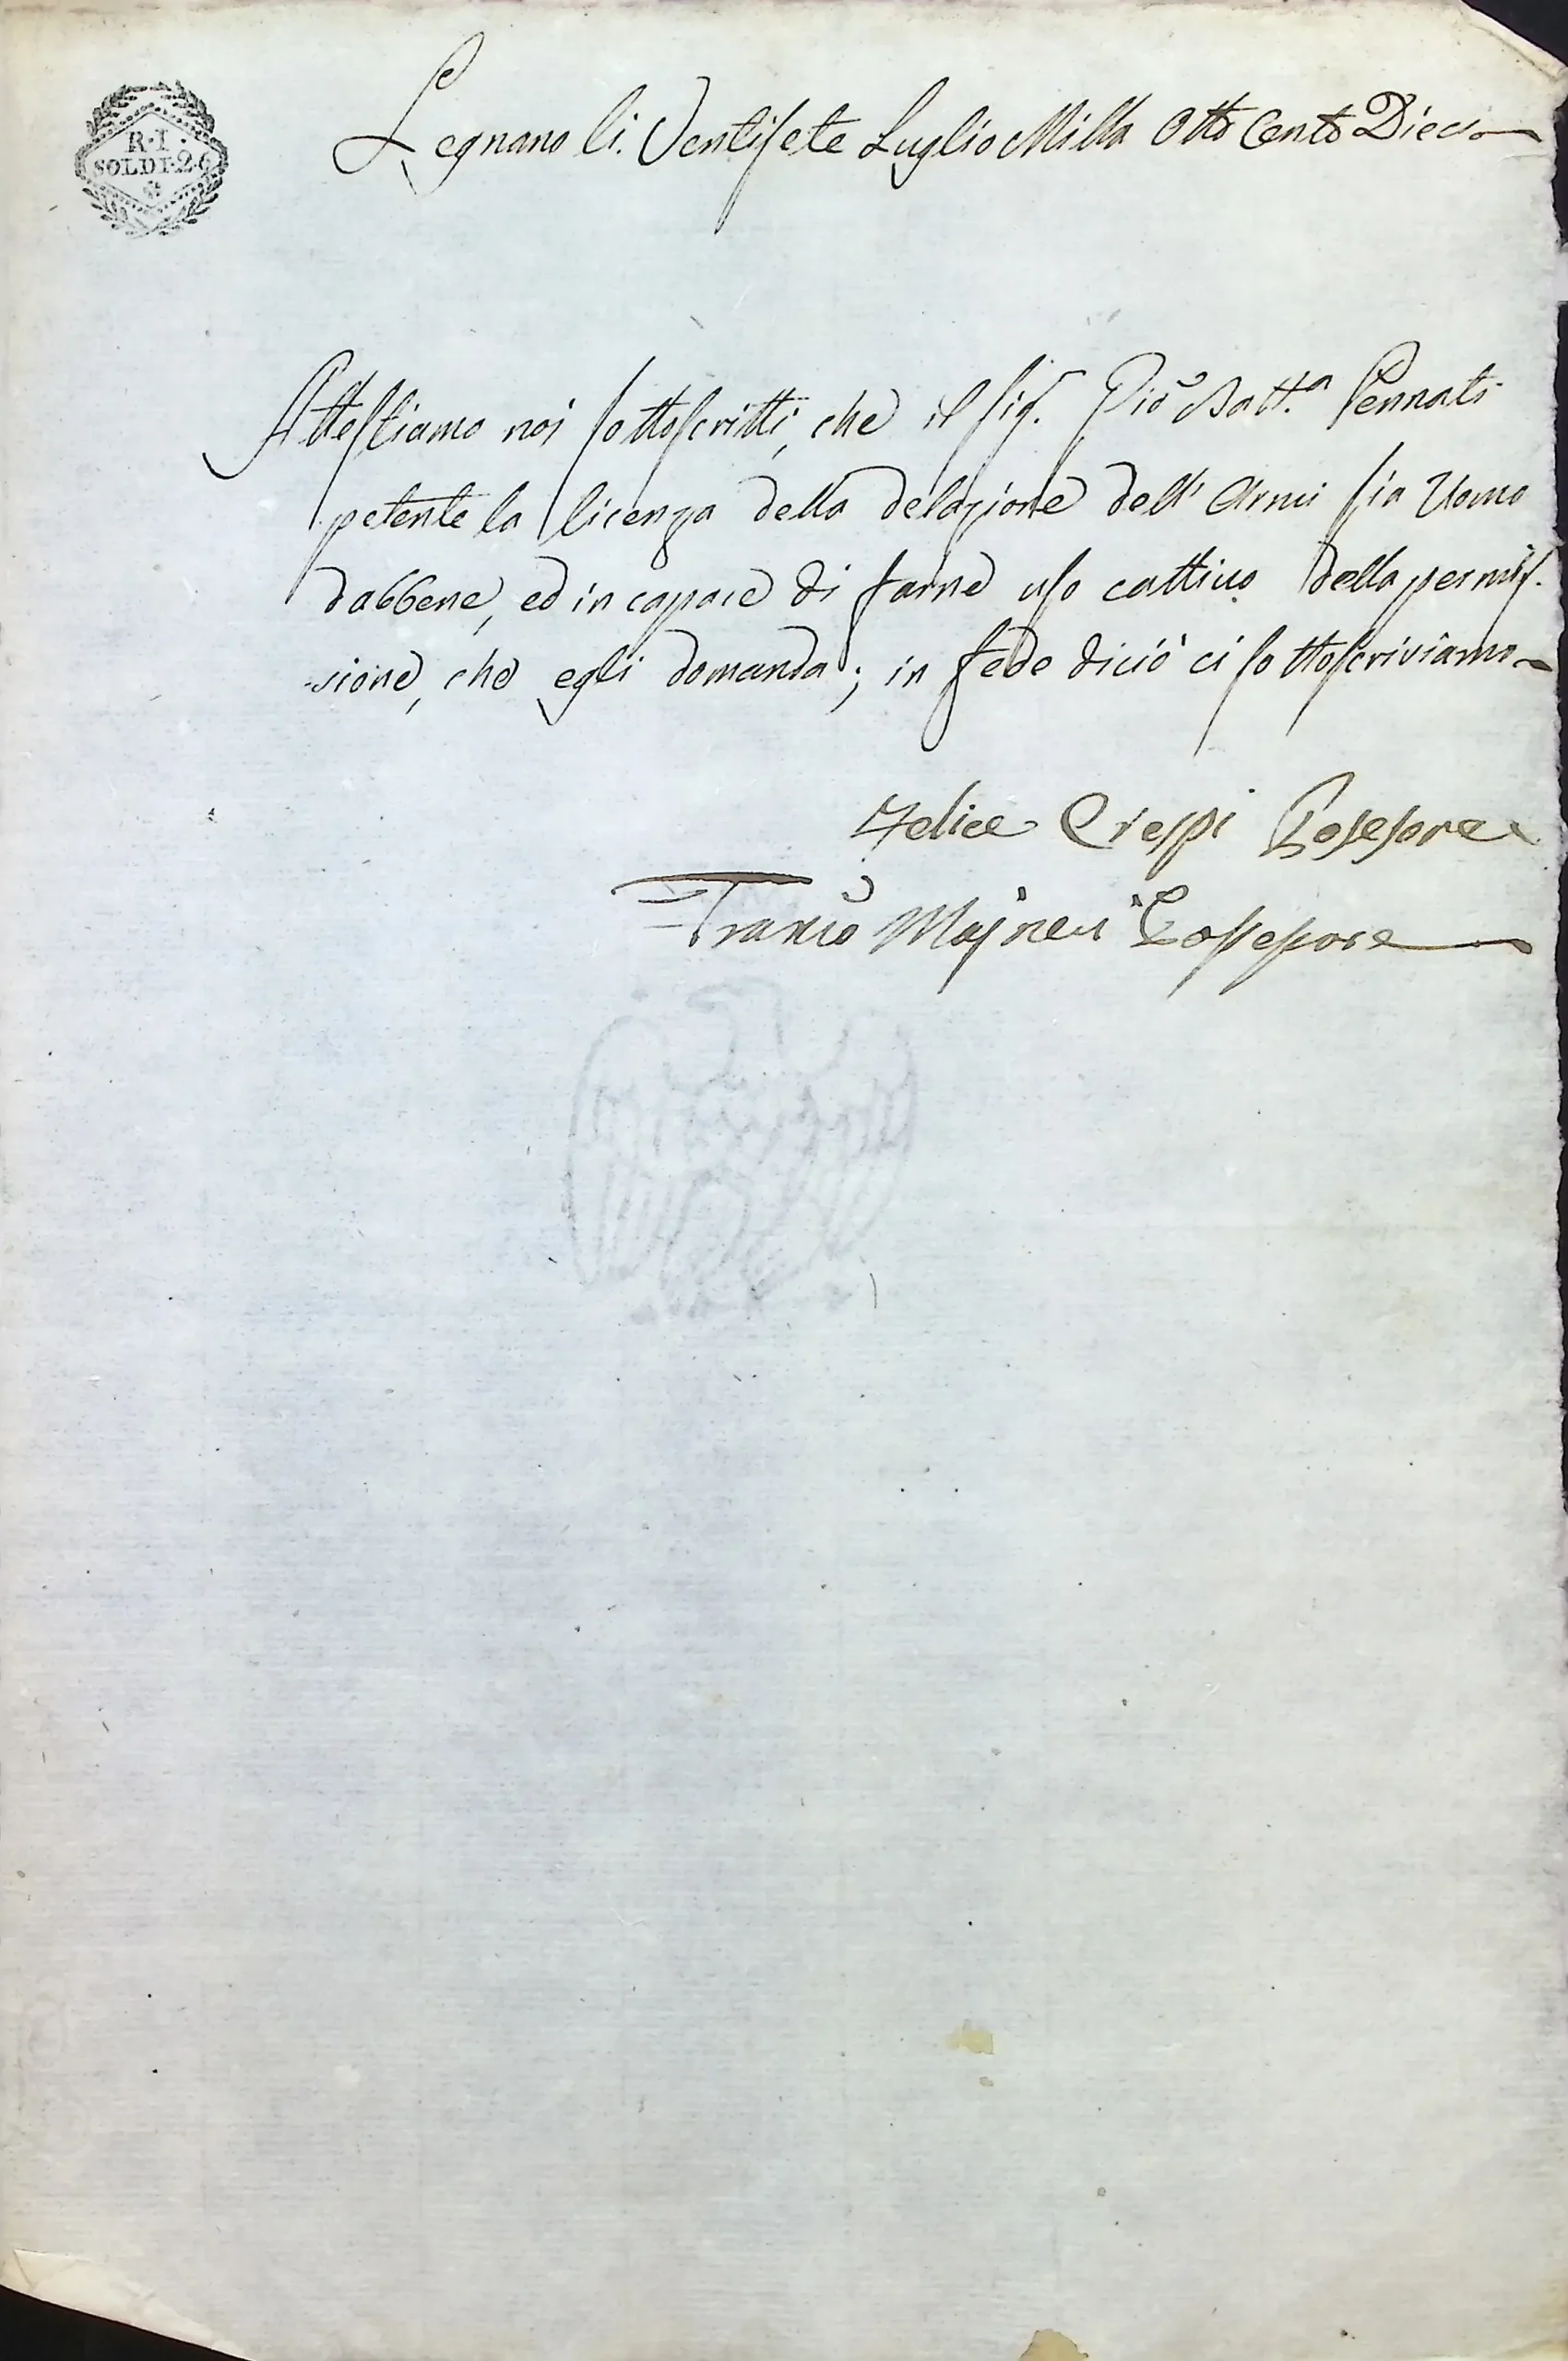 R. I.
SOLDI. 26
Legnano li. Ventisete Luglio Mille Otto Cento Dieci
Attestiamo noi sottoscritti, che il Sig.r Gio Batt.a Pennati
petente la licenza della delazione dell' Armi sia Uomo
dabbene, ed in capace di farne uso cattivo della permis-
-sione, che egli domanda; in fede di ciò ci sottoscriviamo
Felice Crespi Posesore
Franco Majneri Possessore